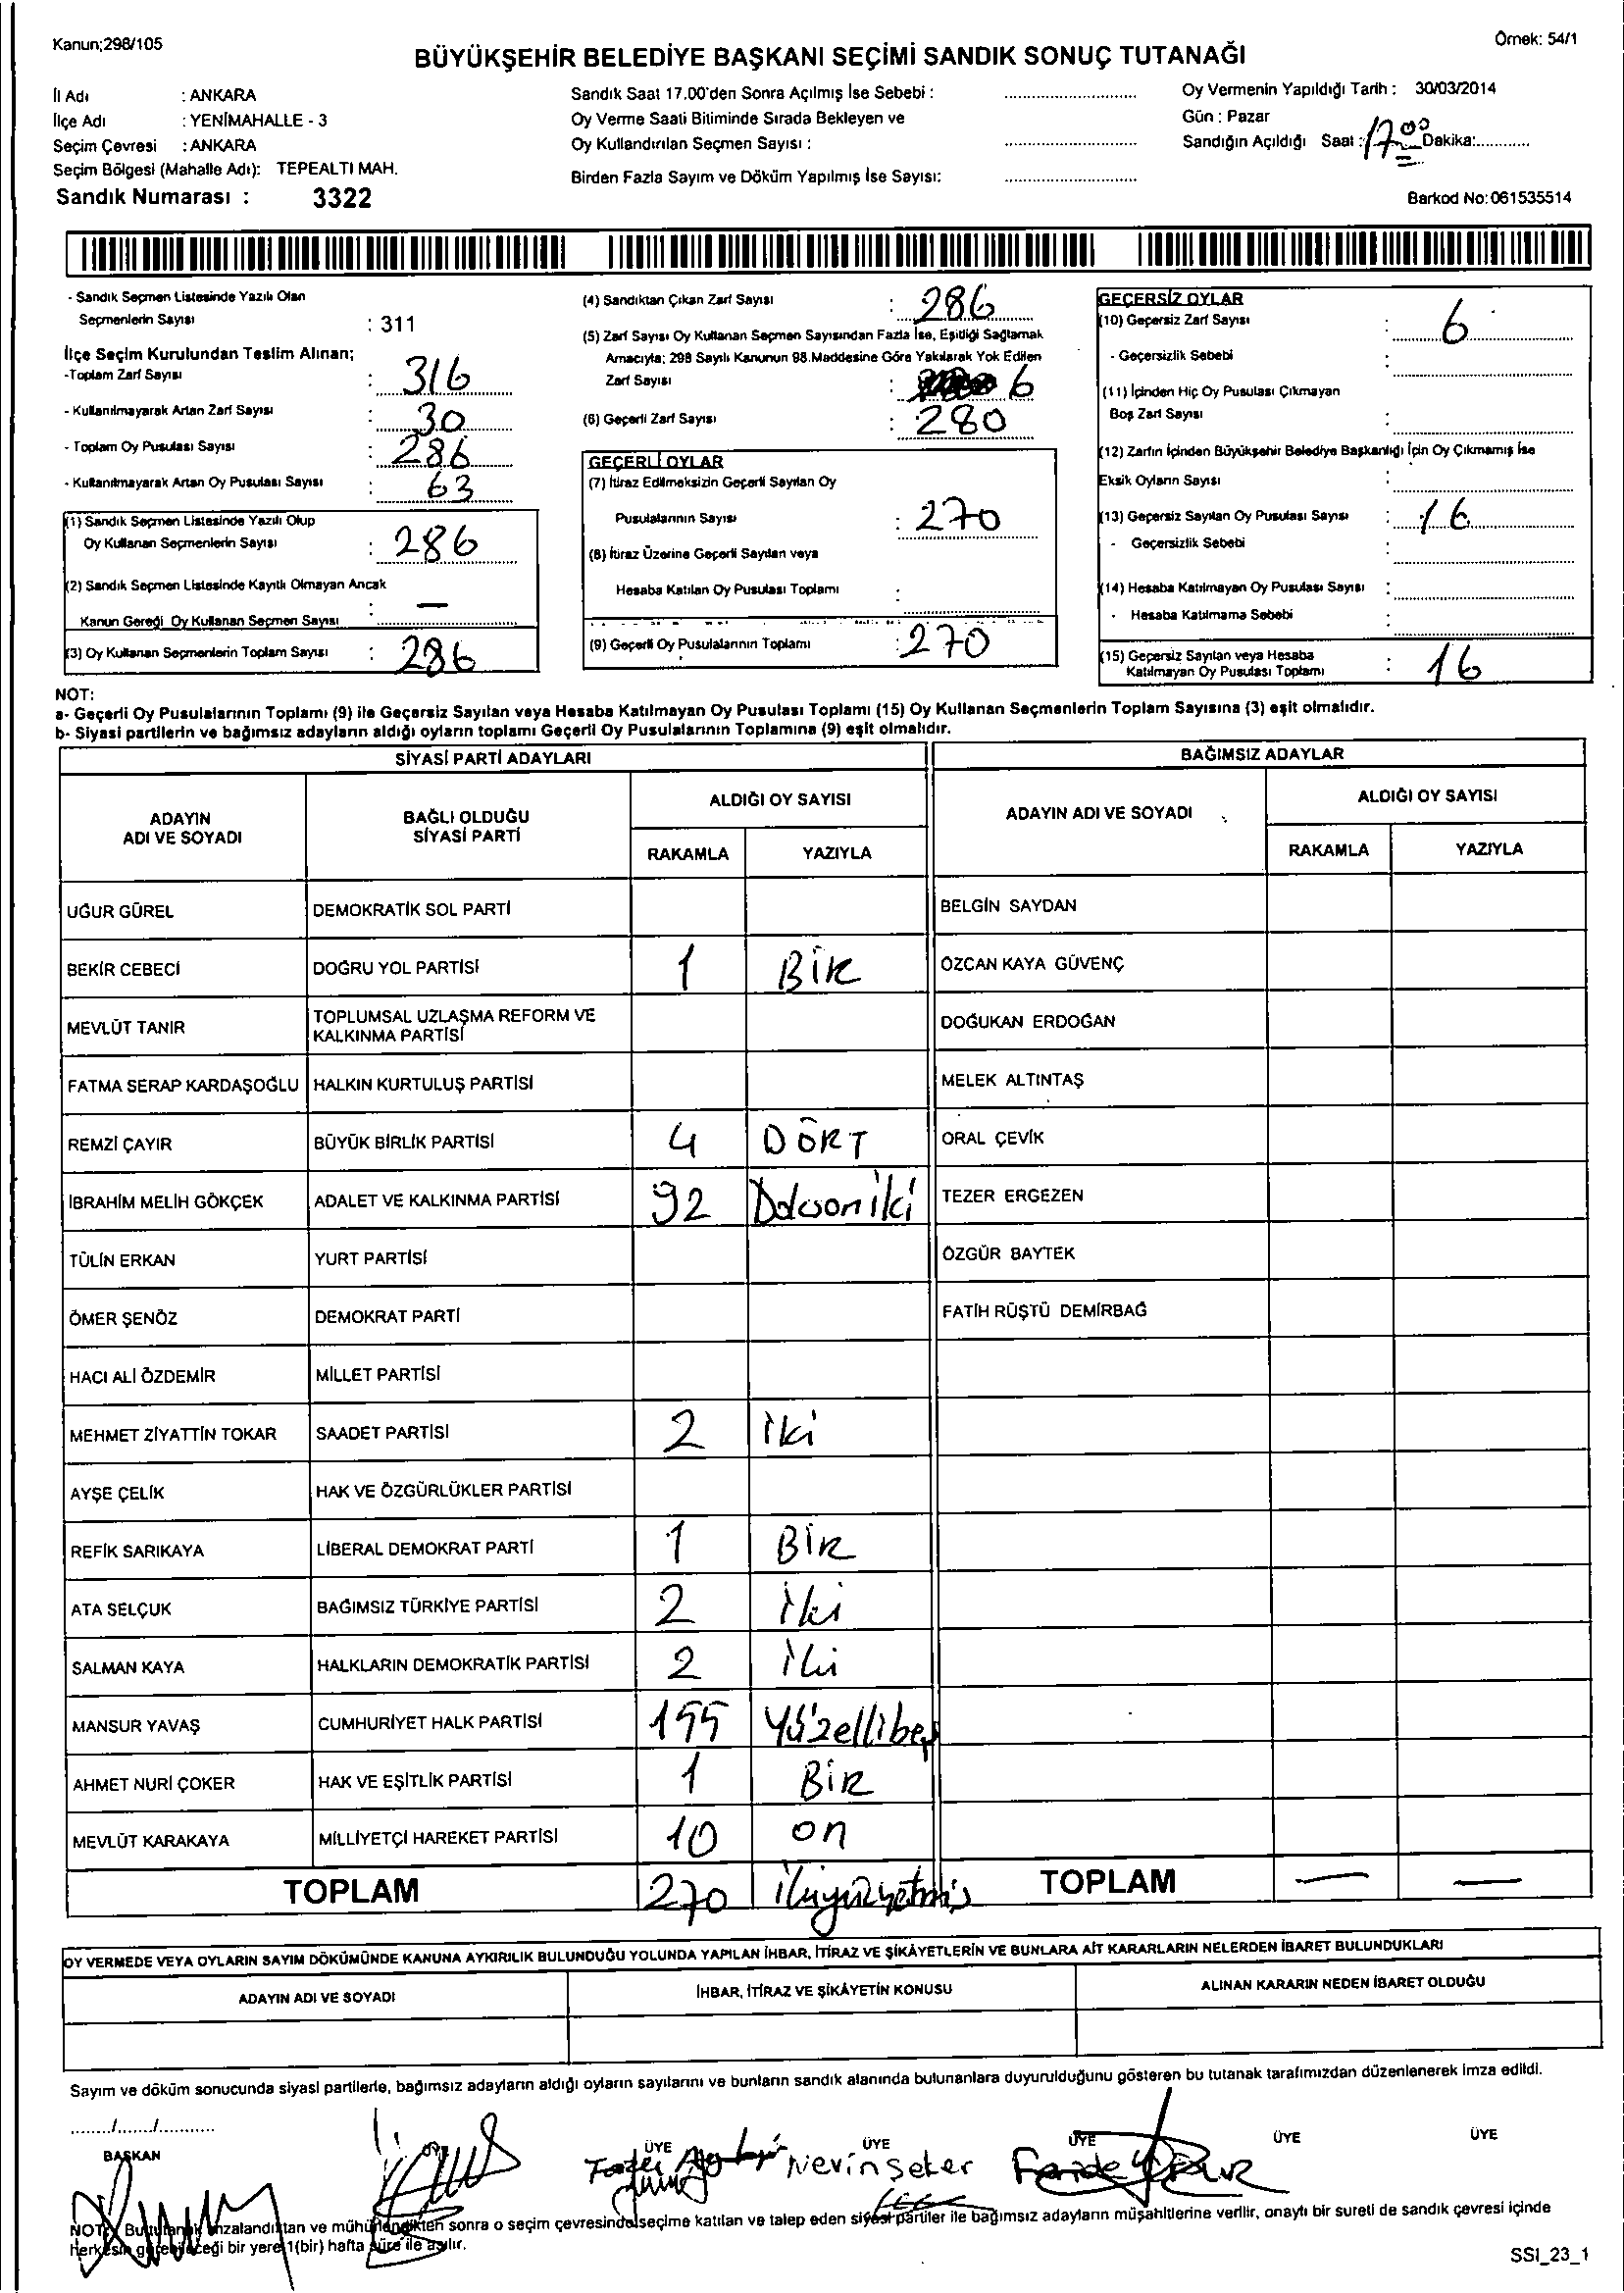 Kanun;298/105
Örnek: 54/1
BÜYÜKŞEHİR BELEDİYE BAŞKANI SEÇİMİ SANDIK SONUÇ TUTANAĞI
İl Adı : ANKARA
İlçe Adı : YENİMAHALLE - 3
Seçim Çevresi : ANKARA
Seçim Bölgesi (Mahalle Adı): TEPEALTI MAH.
Sandık Numarası : 3322
Sandık Saat 17.00'den Sonra Açılmış İse Sebebi :
Oy Verme Saati Bitiminde Sırada Bekleyen ve
Oy Kullandırılan Seçmen Sayısı :
Birden Fazla Sayım ve Döküm Yapılmış İse Sayısı:
Oy Vermenin Yapıldığı Tarih : 30/03/2014
Gün : Pazar
Sandığın Açıldığı Saat : 17 00 Dakika:
Barkod No:061535514
- Sandık Seçmen Listesinde Yazılı Olan
Seçmenlerin Sayısı : 311
İlçe Seçim Kurulundan Teslim Alınan;
-Toplam Zarf Sayısı : 316
- Kullanılmayarak Artan Zarf Sayısı : 30
- Toplam Oy Pusulası Sayısı : 286
- Kullanılmayarak Artan Oy Pusulası Sayısı : 63
(1) Sandık Seçmen Listesinde Yazılı Olup
Oy Kullanan Seçmenlerin Sayısı : 286
(2) Sandık Seçmen Listesinde Kayıtlı Olmayan Ancak
Kanun Gereği Oy Kullanan Seçmen Sayısı : —
(3) Oy Kullanan Seçmenlerin Toplam Sayısı : 286
(4) Sandıktan Çıkan Zarf Sayısı : 286
(5) Zarf Sayısı Oy Kullanan Seçmen Sayısından Fazla İse, Eşitliği Sağlamak
Amacıyla; 298 Sayılı Kanunun 98.Maddesine Göre Yakılarak Yok Edilen
Zarf Sayısı : 6
(6) Geçerli Zarf Sayısı : 280
GEÇERLİ OYLAR
(7) İtiraz Edilmeksizin Geçerli Sayılan Oy
Pusulalarının Sayısı : 270
(8) İtiraz Üzerine Geçerli Sayılan veya
Hesaba Katılan Oy Pusulası Toplamı :
(9) Geçerli Oy Pusulalarının Toplamı : 270
GEÇERSİZ OYLAR
(10) Geçersiz Zarf Sayısı : 6
- Geçersizlik Sebebi :
(11) İçinden Hiç Oy Pusulası Çıkmayan
Boş Zarf Sayısı :
(12) Zarfın İçinden Büyükşehir Belediye Başkanlığı İçin Oy Çıkmamış İse
Eksik Oyların Sayısı :
(13) Geçersiz Sayılan Oy Pusulası Sayısı : 16
- Geçersizlik Sebebi :
(14) Hesaba Katılmayan Oy Pusulası Sayısı :
- Hesaba Katılmama Sebebi :
(15) Geçersiz Sayılan veya Hesaba
Katılmayan Oy Pusulası Toplamı : 16
NOT:
a- Geçerli Oy Pusulalarının Toplamı (9) ile Geçersiz Sayılan veya Hesaba Katılmayan Oy Pusulası Toplamı (15) Oy Kullanan Seçmenlerin Toplam Sayısına (3) eşit olmalıdır.
b- Siyasi partilerin ve bağımsız adayların aldığı oyların toplamı Geçerli Oy Pusulalarının Toplamına (9) eşit olmalıdır.
SİYASİ PARTİ ADAYLARI
BAĞIMSIZ ADAYLAR
ADAYIN
ADI VE SOYADI
BAĞLI OLDUĞU
SİYASİ PARTİ
ALDIĞI OY SAYISI
RAKAMLA YAZIYLA
ADAYIN ADI VE SOYADI
ALDIĞI OY SAYISI
RAKAMLA YAZIYLA
UĞUR GÜREL DEMOKRATİK SOL PARTİ BELGİN SAYDAN
BEKİR CEBECİ DOĞRU YOL PARTİSİ 1 BİR ÖZCAN KAYA GÜVENÇ
MEVLÜT TANIR TOPLUMSAL UZLAŞMA REFORM VE
KALKINMA PARTİSİ DOĞUKAN ERDOĞAN
FATMA SERAP KARDAŞOĞLU HALKIN KURTULUŞ PARTİSİ MELEK ALTINTAŞ
REMZİ ÇAYIR BÜYÜK BİRLİK PARTİSİ 4 DÖRT ORAL ÇEVİK
İBRAHİM MELİH GÖKÇEK ADALET VE KALKINMA PARTİSİ 92 Doksaniki TEZER ERGEZEN
TÜLİN ERKAN YURT PARTİSİ ÖZGÜR BAYTEK
ÖMER ŞENÖZ DEMOKRAT PARTİ FATİH RÜŞTÜ DEMİRBAĞ
HACI ALİ ÖZDEMİR MİLLET PARTİSİ
MEHMET ZİYATTİN TOKAR SAADET PARTİSİ 2 iki
AYŞE ÇELİK HAK VE ÖZGÜRLÜKLER PARTİSİ
REFİK SARIKAYA LİBERAL DEMOKRAT PARTİ 1 BİR
ATA SELÇUK BAĞIMSIZ TÜRKİYE PARTİSİ 2 iki
SALMAN KAYA HALKLARIN DEMOKRATİK PARTİSİ 2 iki
MANSUR YAVAŞ CUMHURİYET HALK PARTİSİ 155 Yüzellibeş
AHMET NURİ ÇOKER HAK VE EŞİTLİK PARTİSİ 1 BİR
MEVLÜT KARAKAYA MİLLİYETÇİ HAREKET PARTİSİ 10 on
TOPLAM 270 ikiyüzyetmiş TOPLAM — —
OY VERMEDE VEYA OYLARIN SAYIM DÖKÜMÜNDE KANUNA AYKIRILIK BULUNDUĞU YOLUNDA YAPILAN İHBAR, İTİRAZ VE ŞİKÂYETLERİN VE BUNLARA AİT KARARLARIN NELERDEN İBARET BULUNDUKLARI
ADAYIN ADI VE SOYADI İHBAR, İTİRAZ VE ŞİKÂYETİN KONUSU ALINAN KARARIN NEDEN İBARET OLDUĞU
Sayım ve döküm sonucunda siyasi partilerle, bağımsız adayların aldığı oyların sayılarını ve bunların sandık alanında bulunanlara duyurulduğunu gösteren bu tutanak tarafımızdan düzenlenerek imza edildi.
....../....../............
BAŞKAN ÜYE ÜYE ÜYE ÜYE ÜYE ÜYE
Nevin Şeker Feride
NOT: Bu tutanak imzalandıktan ve mühürlendikten sonra o seçim çevresinde seçime katılan ve talep eden siyasi partiler ile bağımsız adayların müşahitlerine verilir, onaylı bir sureti de sandık çevresi içinde
herkesin görebileceği bir yere 1(bir) hafta süre ile asılır.
SSİ_23_1